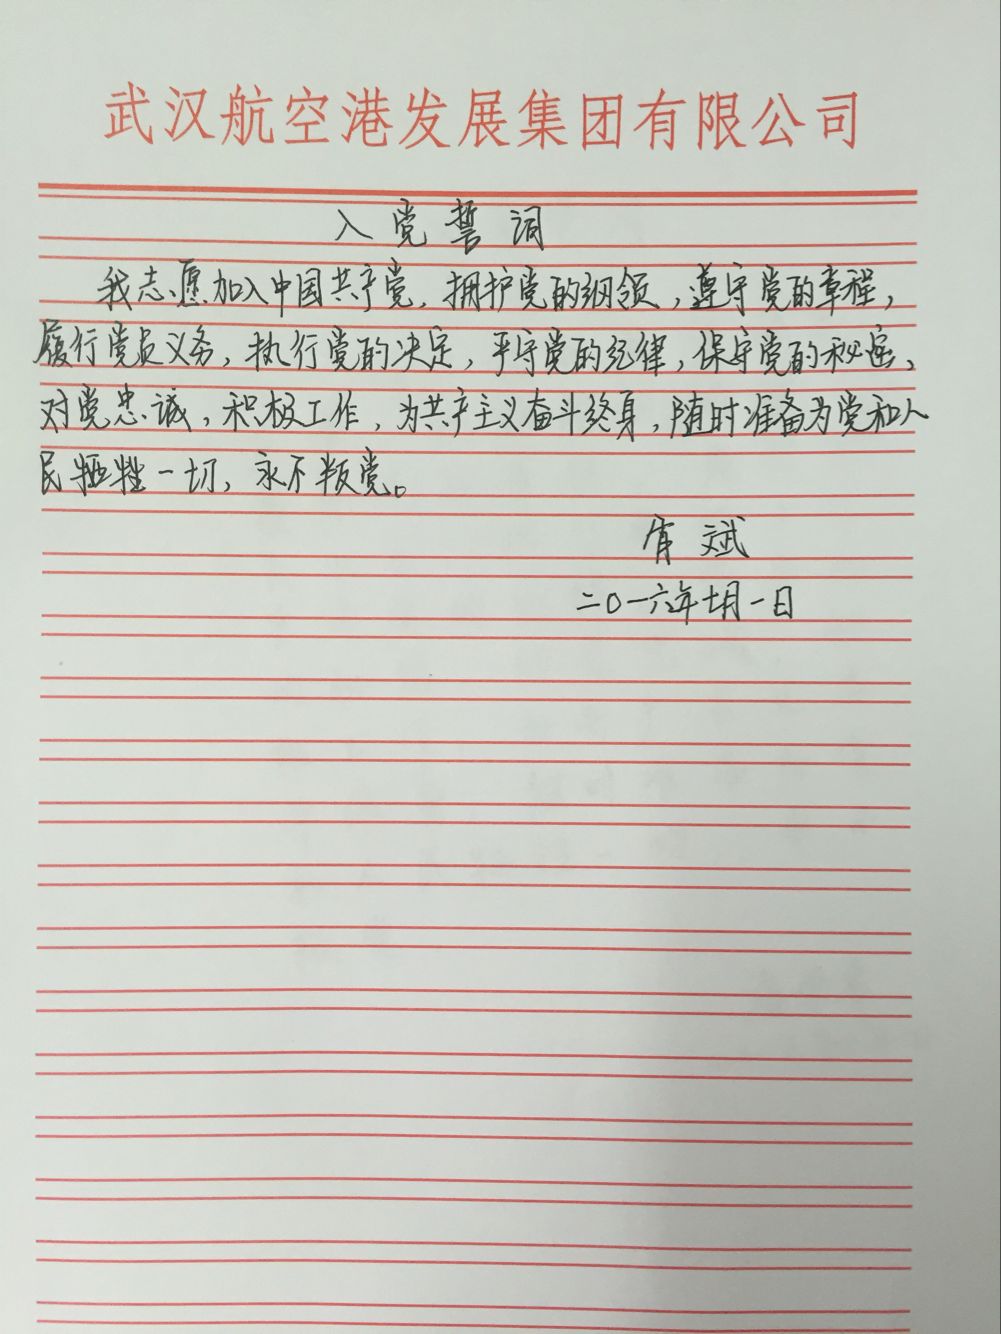 武汉航空港发展集团有限公司
入党誓词
我志愿加入中国共产党，拥护党的纲领，遵守党的章程，
履行党员义务，执行党的决定，严守党的纪律，保守党的秘密，
对党忠诚，积极工作，为共产主义奋斗终身，随时准备为党和人
民牺牲一切，永不叛党。
斌
二〇一六年七月一日